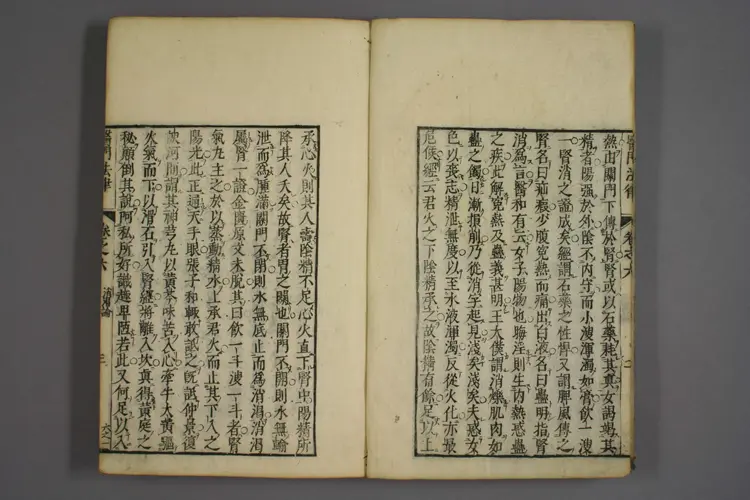 熱由關門下傳於腎腎或以石藥耗其真女謁竭其
精者陽強於外陰不內守而小溲渾濁如膏飲一溲
一腎消之證成矣經謂石藥之性悍又謂脾風傳之
腎名曰疝瘕少腹冤熱而痛出白液名曰蠱明指腎
消為言醫和有云女子陽物也晦淫則生內熱惑蠱
之疾此解冤熱及蠱義甚明王太僕謂消爍肌肉如
蠱之蝕日漸損削乃從消字起見淺矣淺矣夫惑女
色以喪志精泄無度以至水液渾濁反從火化亦最
危候經云君火之下陰精承之故陰精有餘足以上
承心火則其人壽陰精不足心火直下腎中陽精所
降其人夭矣故腎者胃之關也關門不開則水無輸
泄而為腫滿關門不閉則水無底止而為消渴消渴
屬腎一證金匱原文未脫其曰飲一斗溲一斗者腎
氣丸主之於以蒸動精水上承君火而止其下入之
陽光此正通天手眼張子和輒敢詆之既詆仲景復
諛河間謂其神芎丸以黃芩味苦入心牽牛大黃驅
火氣而下以滑石引入腎經將離入坎真得黃庭之
秘顛倒其說阿私所好識趣卑陋若此又何足以入
醫門法律
卷之六
消渴論
三